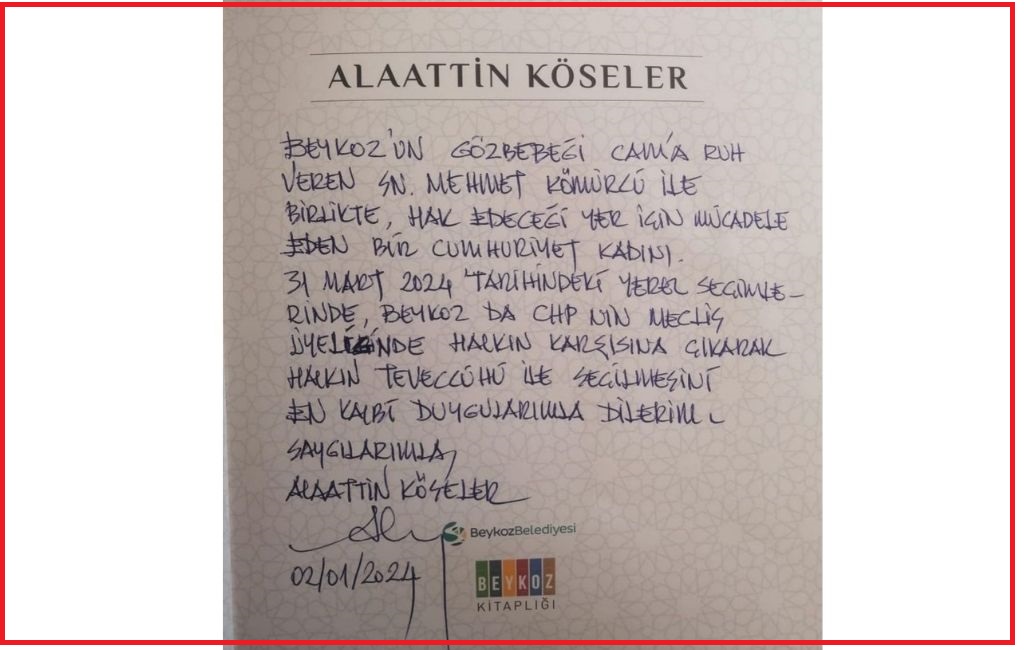 ALAATTİN KÖSELER
BEYKOZ'UN GÖZBEBEĞİ CAM'A RUH
VEREN SN. MEHMET KÖMÜRCÜ İLE
BİRLİKTE, HAK EDECEĞİ YER İÇİN MÜCADELE
EDEN BİR CUMHURİYET KADINI.
31 MART 2024 TARİHİNDEKİ YEREL SEÇİMLE-
RİNDE, BEYKOZ DA CHP NİN MECLİS
ÜYELİĞİNDE HALKIN KARŞISINA ÇIKARAK
HALKIN TEVECCÜHÜ İLE SEÇİLMESİNİ
EN KALBİ DUYGULARIMLA DİLERİM.
SAYGILARIMLA,
ALAATTİN KÖSELER
BeykozBelediyesi
02/01/2024
BEYKOZ
KİTAPLIĞI